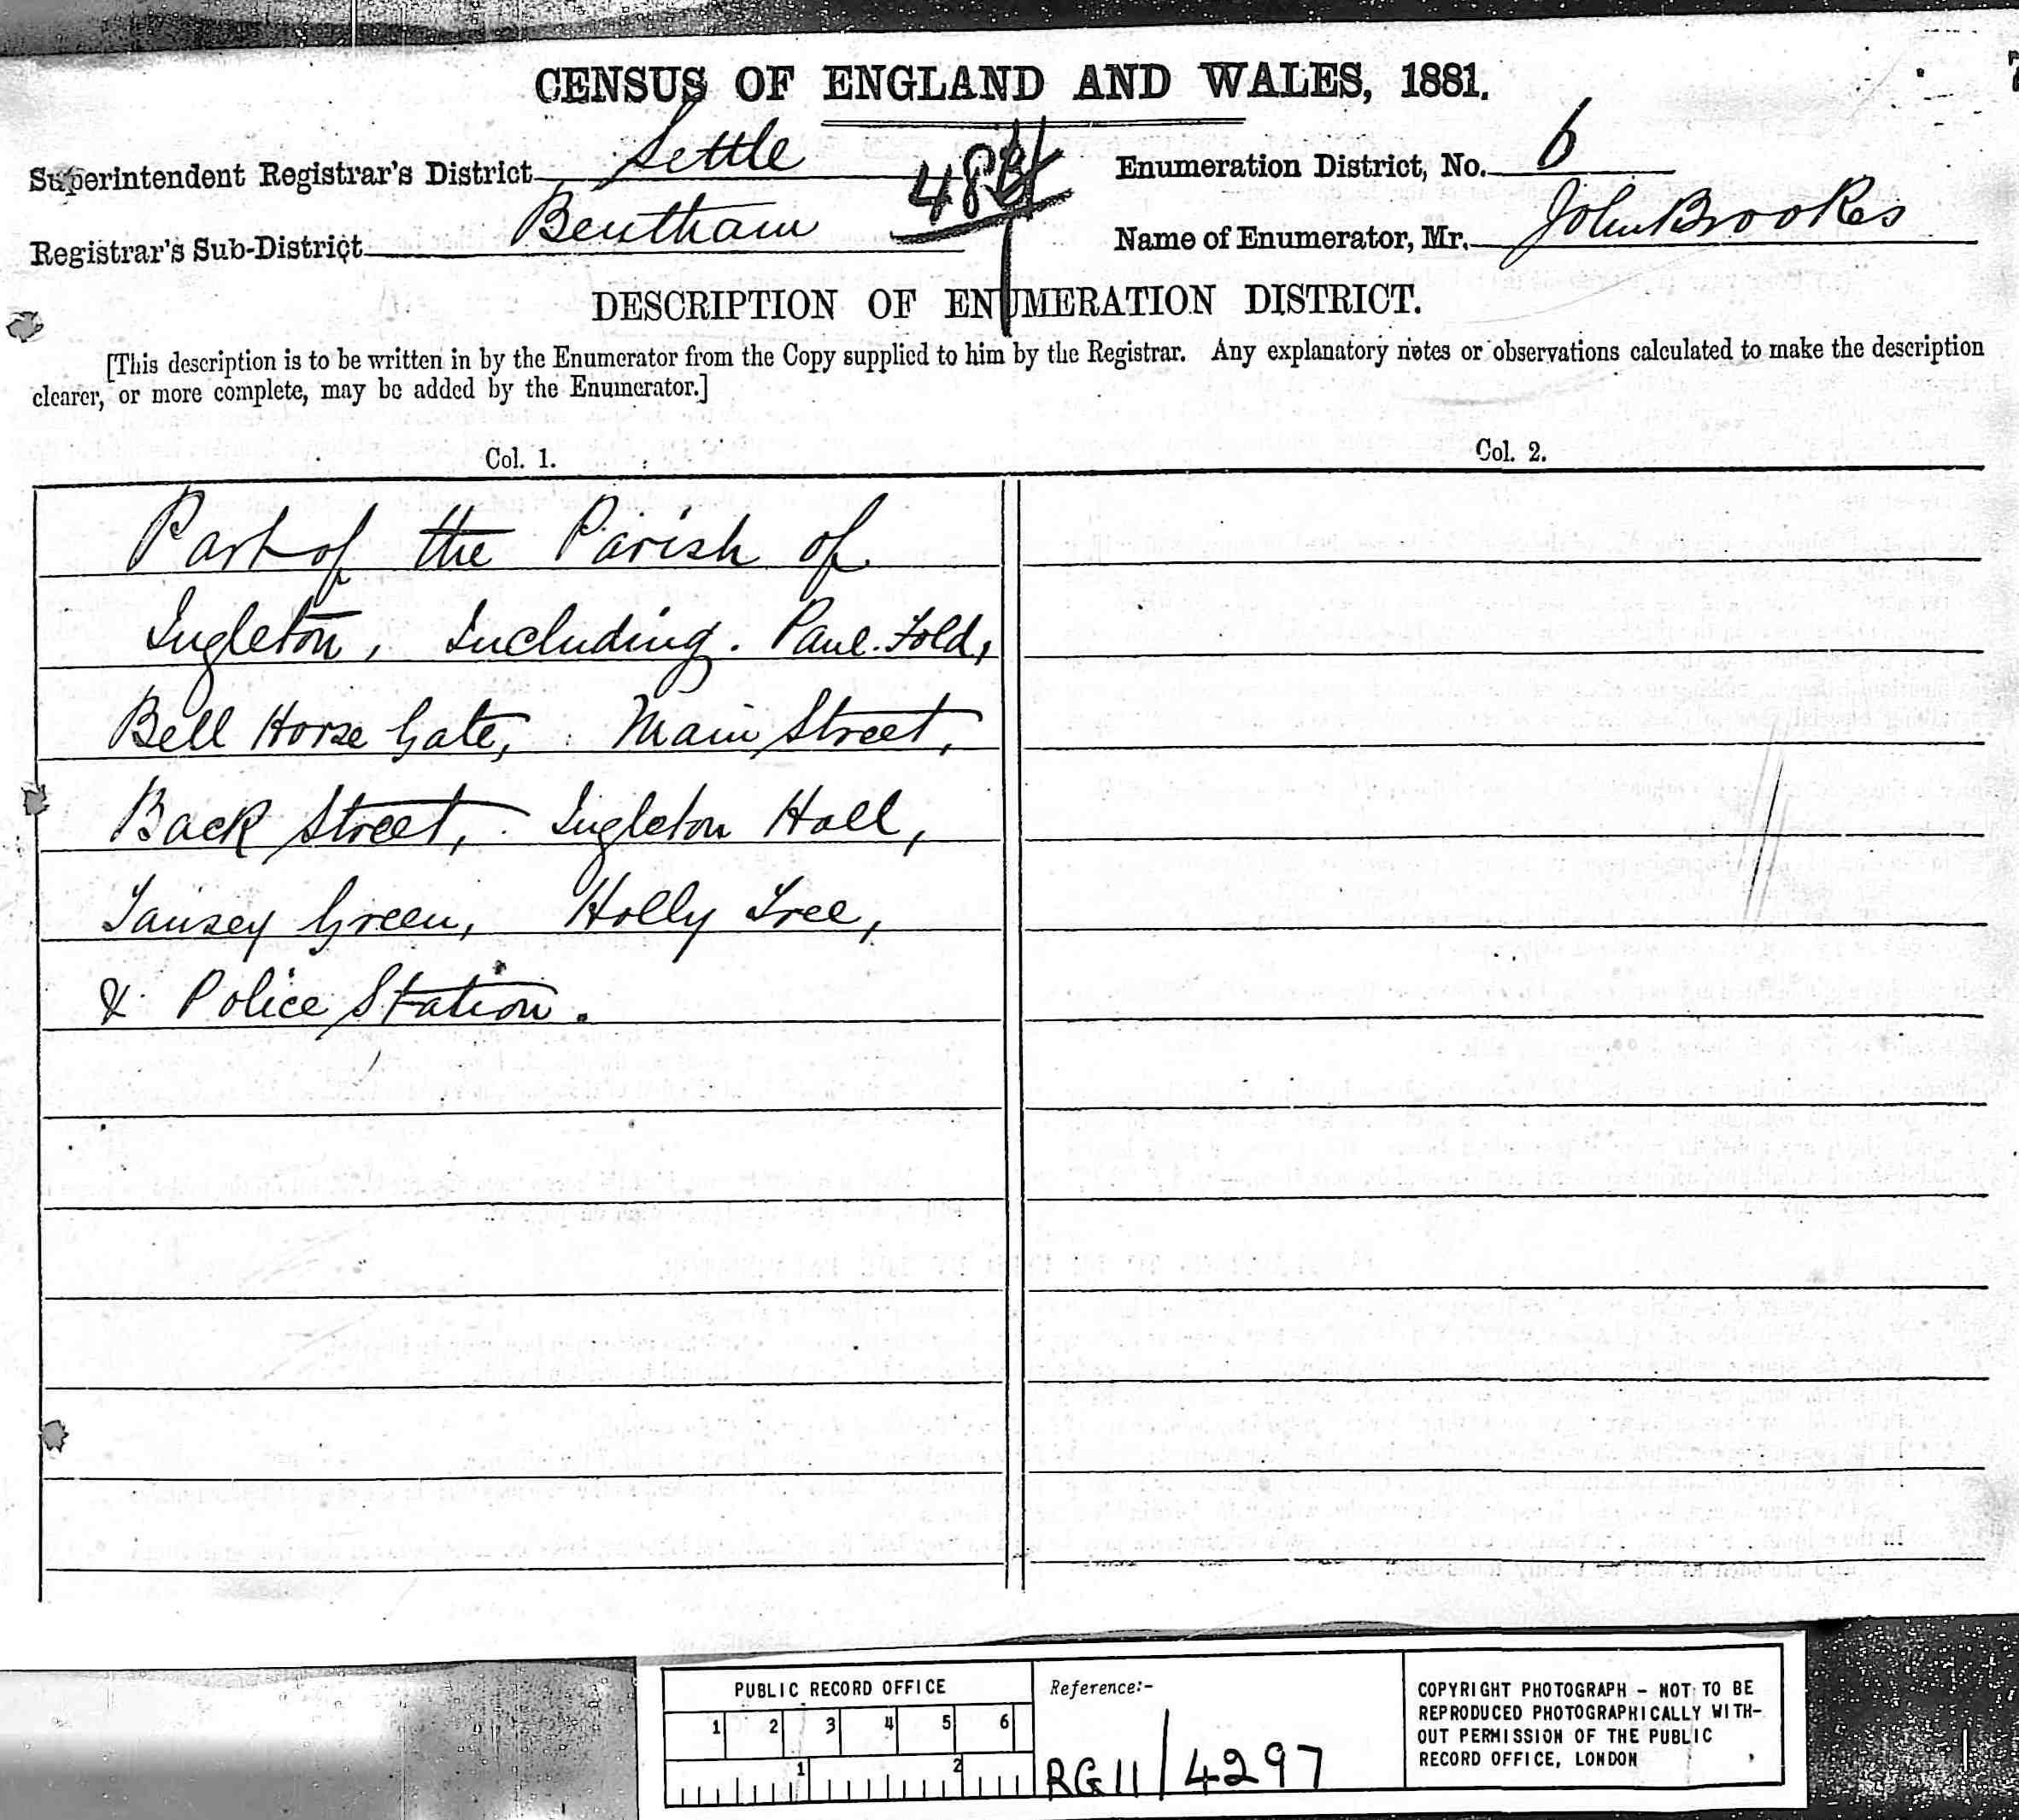 CENSUS OF ENGLAND AND WALES, 1881.
Superintendent Registrar's District Settle
Enumeration District, No. 6
Registrar's Sub-District Bentham
Name of Enumerator, Mr. John Brookes
DESCRIPTION OF ENUMERATION DISTRICT.
[This description is to be written in by the Enumerator from the Copy supplied to him by the Registrar. Any explanatory notes or observations calculated to make the description
clearer, or more complete, may be added by the Enumerator.]
Col. 1.
Col. 2.
Part of the Parish of
Ingleton, Including. Paul. Fold,
Bell Horse Gate, Main Street,
Back Street, Ingleton Hall,
Green, Holly Tree,
& Police Station.
PUBLIC RECORD OFFICE
1 2 3 4 5 6
1 2
Reference:-
RG11/4297
COPYRIGHT PHOTOGRAPH - NOT TO BE
REPRODUCED PHOTOGRAPHICALLY WITH-
OUT PERMISSION OF THE PUBLIC
RECORD OFFICE, LONDON